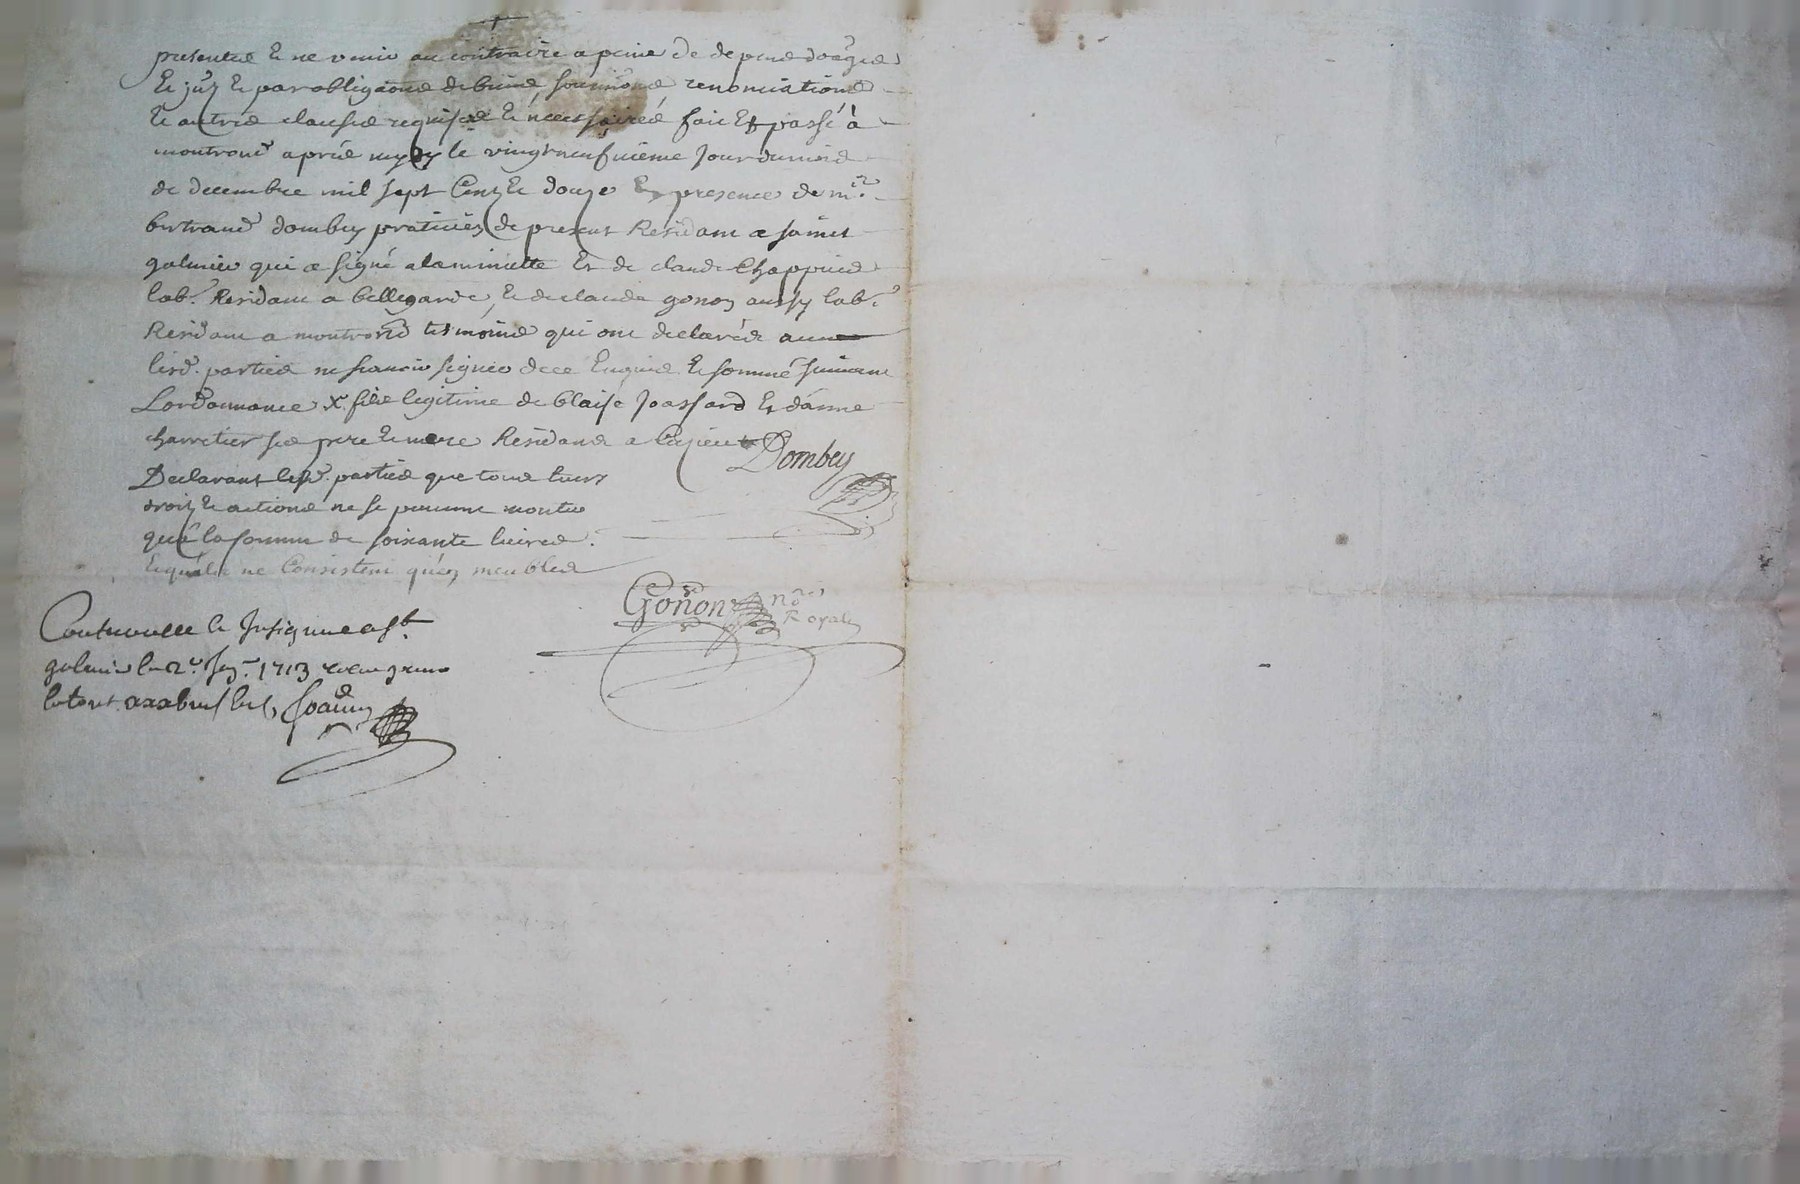 presentes & ne venir au contraire a peine de de
& par obligaõns de biens, soumiõns renonciations
& autres clauses requises & necessaires fait & passé à
montrond aprés mydy le vingt neufvieme jour du mois
de decembre mil sept Centz & douze En presence de mr.
bertrand dombey praticien de present Residant a sainct
galmier qui a signé a la minutte Et de claude Chappuis
lab.r Residant a bellegarde, & de claude gonon aussy lab.r
Residant a montrond tesmoins qui ont declarés avec
lesd. parties ne scavoir signer de ce Enquis & sommé suivant
Lordonnance X fils legitime de blaise Joassard Et danne
charretier ses pere & mere Residans a
Dombey
Declarant lesd. parties que tous leurs
droitz & actions ne se peuvent monter
qu'a la somme de soixante livres.
Lesquels ne Consistent qu'en meubles
Gonon no.re Royal
Controuelle & Insignue a St.
galmier le 2e Jan. 1713